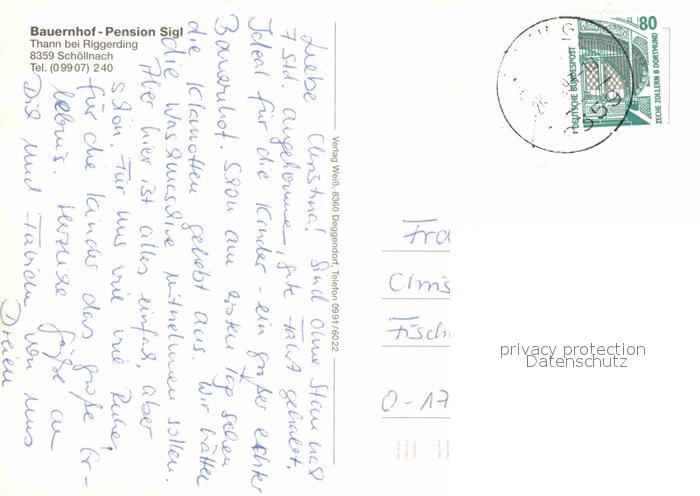 Bauernhof - Pension Sigl
Thann bei Riggerding
8359 Schöllnach
Tel. (0 99 07) 2 40
Liebe Christina! Sind ohne Stau nach
7 Std. angekommen, gute Fahrt gehabt.
Ideal für die Kinder - ein großer echter
Bauernhof. Schon am ersten Tag sehen
die Klamotten gelebt aus. Wir hätten
die Waschmaschine mitnehmen sollen.
Aber hier ist alles einfach, aber
schön. Für uns wie viel Ruhe,
für die Kinder das große Er-
lebnis. Herzliche Grüße an
Dich und Familie von uns
Dreien
Verlag Weiß, 8360 Deggendorf, Telefon 0991/6022
80
DEUTSCHE BUNDESPOST
ZECHE ZOLLERN II DORTMUND
8359
Fra
Chris
Fisch
O-17
privacy protection
Datenschutz